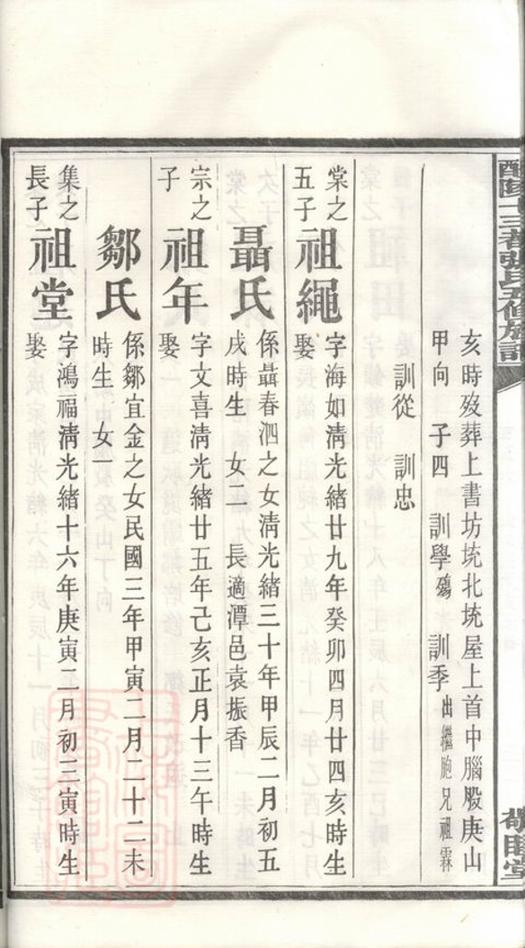 醴陵十三都張氏五修族譜
亥時歿葬上書坊垸北垸屋上首中腦股庚山
甲向 子四 訓學殤 訓季出繼胞兄祖霖
訓從 訓忠
棠之五子祖繩字海如清光緒廿九年癸卯四月廿四亥時生
娶
聶氏係聶春泗之女清光緒三十年甲辰二月初五
戌時生 女二 長適潭邑袁振香
宗之子祖年字文喜清光緒廿五年己亥正月十三午時生
娶
鄒氏係鄒宜金之女民國三年甲寅二月二十二未
時生 女一
集之長子祖堂字鴻福清光緒十六年庚寅二月初三寅時生
娶